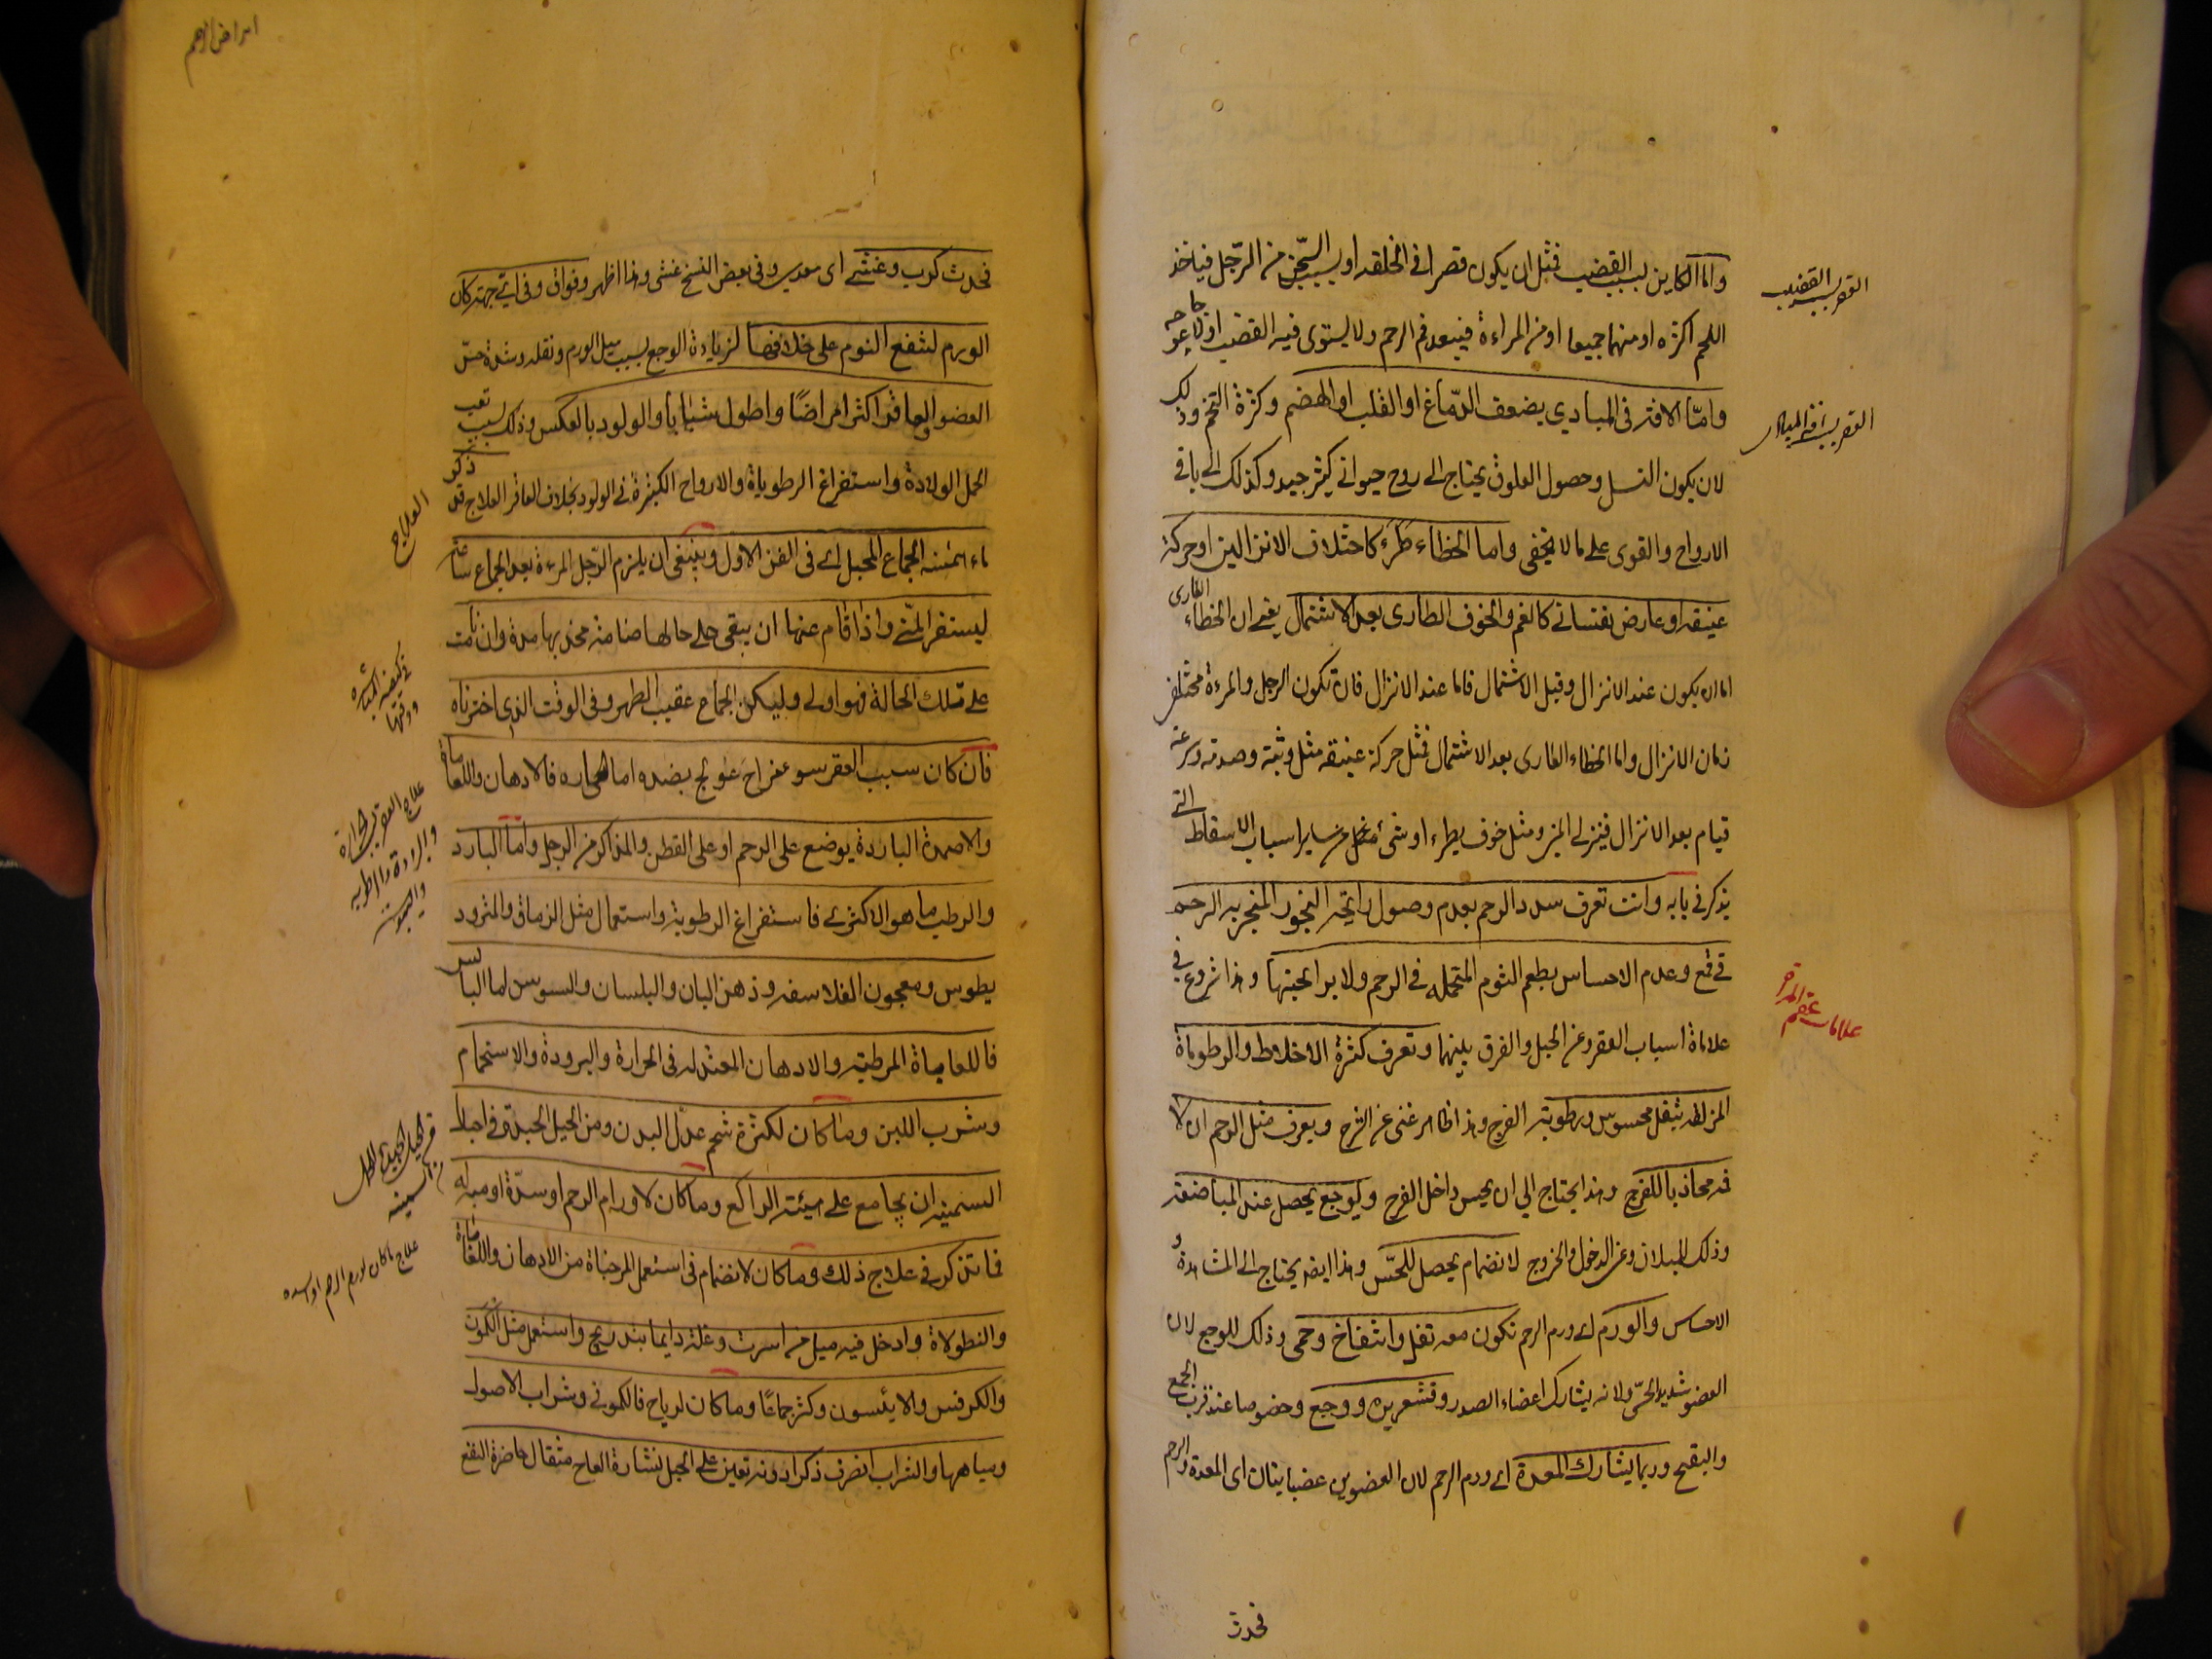 واما الكاين بسبب القضيب فمثل ان يكون قصرا فى الخلقه او بسبب السمن من الرّجل فياخذ
اللحم اكثره او منهما جميعا او من المراءة فيبعد فم الرحم ولا يستوى فيه القضيب او لاعو
جاجه
وامّا الافته فى المبادي بضعف الدّماغ او القلب او الهضم وكثرة التخم وذلك
لان يكون النسل وحصول العلوق يحتاج الى روح حيوانى كثير جيد وكذلك الى باقى
الارواح والقوى على ما لا يخفى واما الخطاء طرء كاختلاف الانزالين او حركة
عنيفه او عارض نفسانى كالغم والخوف الطارى بعد الاشتمال يعنى ان الخطاء
الطارى
اما ان يكون عند الانزال وقبل الاشتمال فاما عند الانزال فان تكون الرجل والمرءة مختلفى
زمان الانزال واما الخطاء الطارى بعد الاشتمال فمثل حركة عنيفه مثل وثبة وصدمة وسرعة
قيام بعد الانزال فينزلى المنى ومثل خوف يطرء او شئ من سايرا سباب الاسقاط التى
يذكر فى بابه وانت تعرف سدد الرحم بعدم وصول رايحه البخور المنجر به الرحم
فى قمع وعدم الاحساس بطعم الثوم المتحمله فى الرحم ولا برايحتها وهذا شروع فى
علاماة اسباب العقر وعن الحبل والفرق بينهما وتعرف كثرة الاخلاط والرطوباة
المزلقه بثقل محسوس ورطوبة الفرج وهذا ظاهر غنى عن الشرح ويعرف ميل الرحم ان لا
فمه محاذيا للفرج وهذا يحتاج الى ان يحس داخل الفرج وبوجع يحصل عند المباضعة
وذلك للميلان وعن الدخول والخروج لانضمام يحصل للحسّ وهذا ايضا يحتاج الى المشاهدة و
الاحساس والورم اى ورم الرحم تكون معه ثقل وانتفاخ وحمى وذلك للوجع لان
العضو شديد الحسّ ولانه يشارك اعضاء الصدر وقشعريره ووجع وخصوصا عند قرب الجمع
والتقيح وربما يشارك المعدة اى ورم الرحم لان العضوين عصبايتان اى المعدة والرحم
فحدث
العقر بسبب القضيب
العقر بسبب افة المبادى
علامات عقم المراة
امراض الرحم
فحدث كرب وغشى اى وفى بعض النسخ غشى وهذا اظهر وفواق وفى اى جهة كان
الورم لشفع النوم على خلافها لزيادة الوجع بسبب ميل الورم وثقله وشدة حسّ
العضو والعاقر اكثر امراضًا واطول شبابا والولود بالعكس وذلك بسبب تعب
الحمل الولادة واستفراغ الرطوباة والارواح الكثيرة فى الولود بخلاف العاقر العلاج قد ذكر
ناء الجماع المحبل اى فى الفن الاول وينبغى ان يلزم الرّجل المرءة بعد الجماع ساعة
ليستقر المنى واذا قام عنها ان يبقى على حالها ضامة فخذيها مدة وان نامت
على تلك الحالة فهو اولى وليكن الجماع عقيب الطهر وفى الوقت الذى اخترناه
فان كان سبب العقر سوء مزاج عولج بضده اما الحاره فالادهان واللعاباة
والاضمدة الباردة يوضع على الرحم او على القطن والمذاكر من الرجل واما البارد
والرطب ما هو الاكثرى فاستفراغ الرطوبة واستعمال مثل الزماق والمثرود
يطوس ومعجون الفلاسفه وذهن البان والبلسان والسوس اما اليابس
فاللعاباة المرطبه والادهان المعتدله فى الحرارة والبرودة والاستحمام
وشرب اللبن وما كان لكثرة شحم عدّل البدن ومن الحيل الجيدة فى احبال
السمينه ان يجامع على هيئة الراكع وما كان لاورام الرحم او سدّة او ميله
فاتذكر فى علاج ذلك وما كان لانضمام فى استعمل المرخياة من الادهان واللعاباة
والنطولاة وادخل فيه ميل من اسرب وغلظ دايما بتدريج واستعمل مثل الكمون
والكرفس والانيسون وكثر جماعًا وما كان لرياح فالكمونى وشراب الاصول
ومياهها والشراب الصرف ذكر ادوية تعين على الحبل نشارة العاج مثقال حاضرة النفع
العلاج
فى كيفية المباشرة
ووقتها
علاج العقر بالحرارة
والبرودة والرطوبه
واليبوسة
من الحيل الجيدة احبال
السمينه
علاج ما كان لورم الرحم او سده